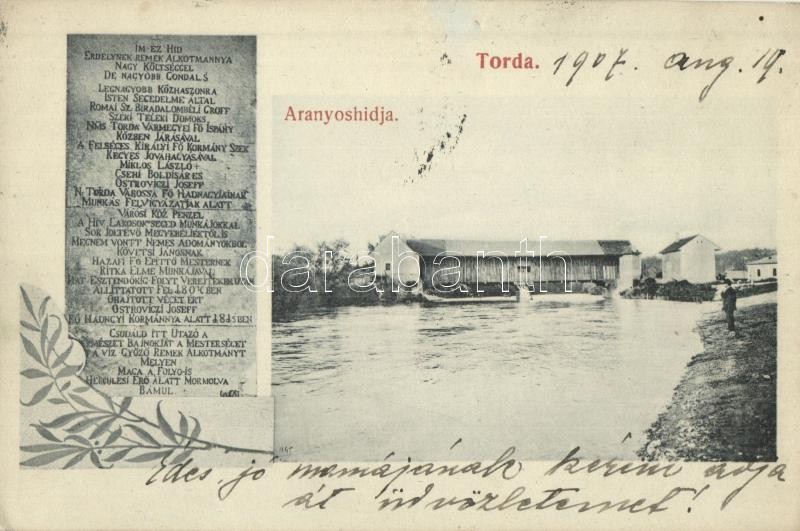 IM EZ HID
ERDELYNEK REMEK ALKOTMANNYA
NAGY KÖLTSÉGGEL
DE NAGYOBB GONDAL S
LEGNAGYOBB KÖZHASZONRA
ISTEN SEGEDELME ÁLTAL
ROMAI SZ. BIRADALOMBÉLI GROFF
SZEKI TELEKI DOMOKS
NMS TORDA VARMEGYEI FÖ ISPÁNY
KÖZBEN JÁRÁSÁVAL
A FELSÉGES KIRÁLYI FÖ KORMÁNY SZEK
KEGYES JOVAHAGYASÁVAL
MIKLOS LÁSZLO
CSEHI BOLDISÁR ES
OSTROVICZI JOSEFF
N. TORDA VÁROSSA FÖ HADNAGYJAINAK
MUNKÁS FELVIGYÁZATJAK ALATT
VÁROSI KÖZ PÉNZEL
A HIV LAKOSOK SEGED MUNKÁJOKKAL
SOK JÓLTÉVÖ MEGYEBELIEKTÖL IS
MEGNEM VONTT NEMES ADOMÁNYOKBOL
KÖVETSI JÁNOSNAK
HAZAFI FÖ EPITTÖ MESTERNEK
RITKA ELME MUNKÁJÁVAL
HAT ESZTENDÖKIG FOLYT
ALLITTATOTT FEL
OHAJTOTT VÉGET ÉRT
OSTROVICZI JOSEFF
FÖ HADNGYI KORMÁNNYA ALATT
CSUDÁLD ITT UTAZÓ A
TERMÉSZET BAJNOKJÁT A MESTERSÉGET
S A VIZ GYÖZÖ REMEK ALKOTMÁNYT
MELYEN
MAGA A FOLYO IS
HERCULESI ERÖ ALATT MORMOLVA
BÁMUL
Torda. 1907. aug. 19.
Aranyoshidja.
darabanth
Édes, jó mamájának kérem adja
át üdvözletemet!